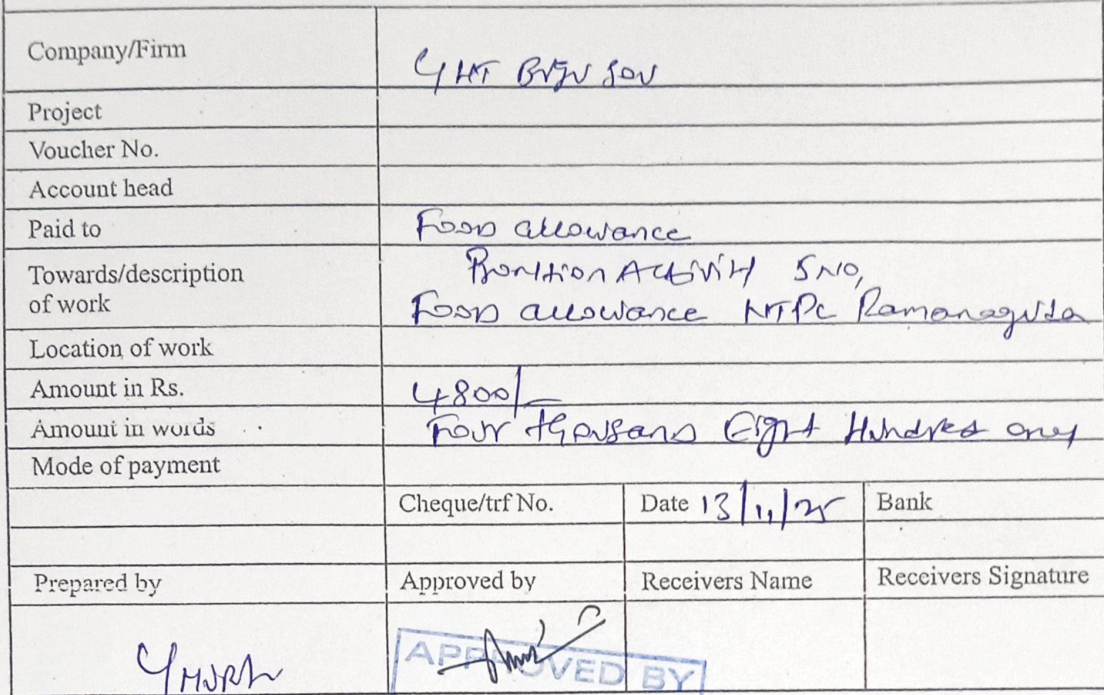 Company/Firm
Project
Voucher No.
Account head
Paid to Food allowance
Towards/description
of work
Food allowance NTPC
Location of work
Amount in Rs. 4800/-
Amount in words Four thousand Eight Hundred only
Mode of payment
Cheque/trf No. Date 13/11/25 Bank
Prepared by Approved by Receivers Name Receivers Signature
APPROVED BY